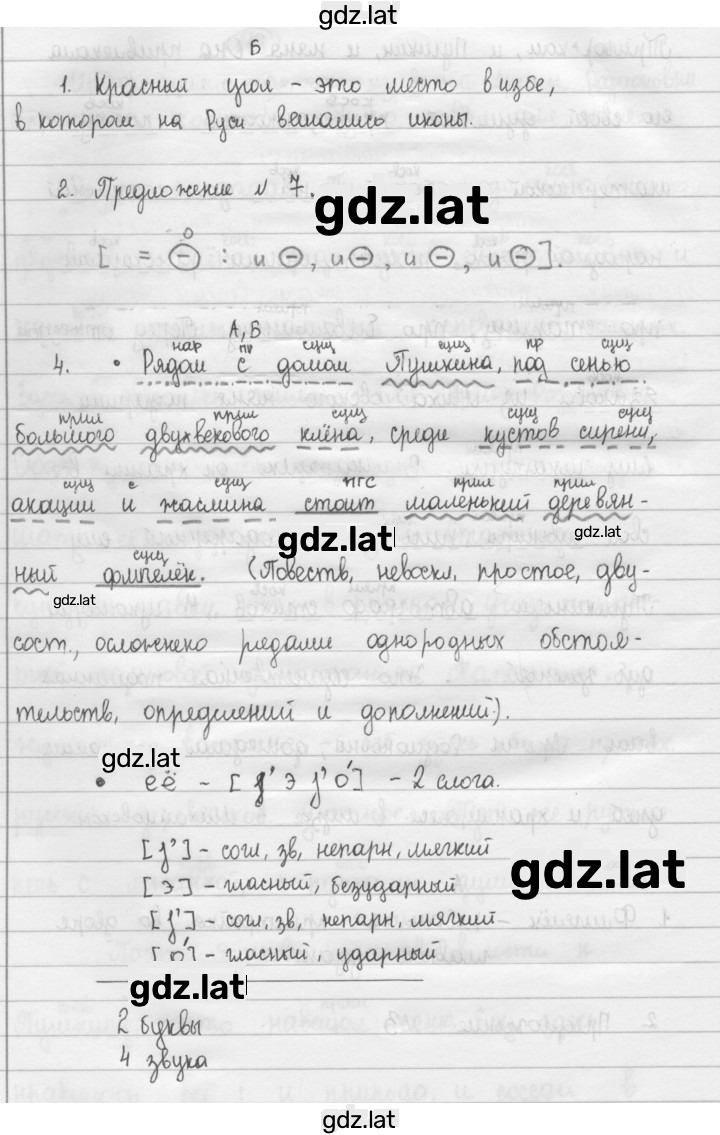 gdz.lat
Б
1. Красный угол – это место в избе,
в котором на Руси вешались иконы.
2. Предложение № 7.
gdz.lat
[ = ⊖ : и ⊖, и ⊖, и ⊖, и ⊖].
А, Б
нар пр сущ сущ пр сущ
4. • Рядом с домом Пушкина, под сенью
прил прил сущ сущ сущ
большого двухвекового клёна, среди кустов сирени,
сущ с сущ ГС прил прил
акации и жасмина стоит маленький деревян-
gdz.lat
gdz.lat
сущ
ный флигелёк. (Повеств, невоскл, простое, дву-
gdz.lat
сост., осложнено рядами однородных обстоя-
тельств, определений и дополнений).
gdz.lat
• её – [j' э j' о́] – 2 слога.
[j'] – согл, зв, непарн, мягкий
[э] – гласный, безударный
gdz.lat
[j'] – согл, зв, непарн, мягкий
[о́] – гласный, ударный
gdz.lat
2 буквы
4 звука
gdz.lat